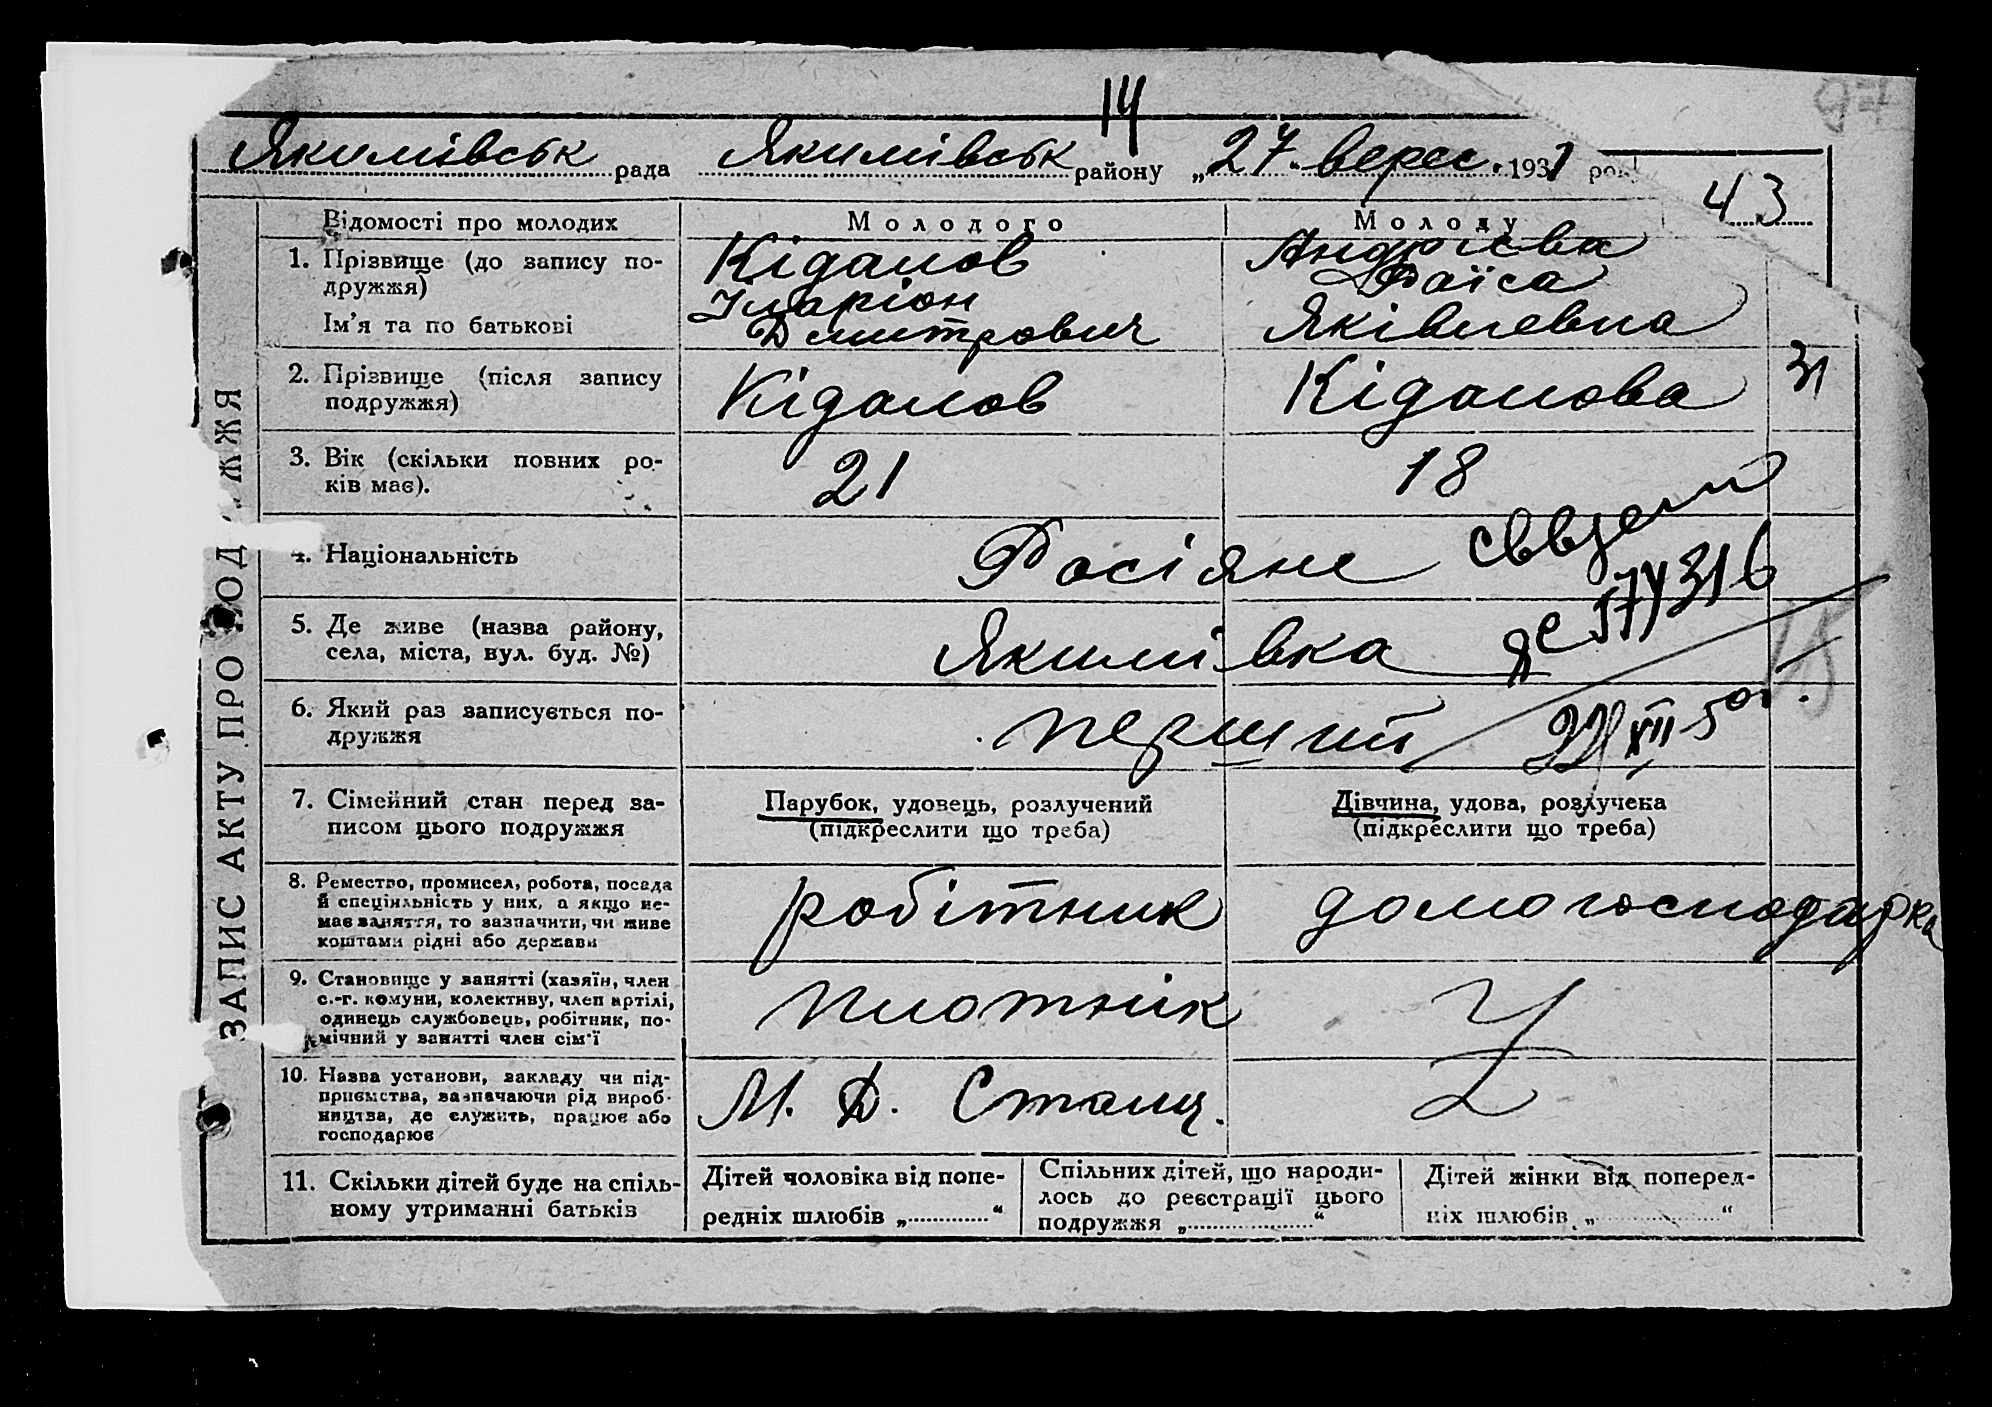 14
Якимівськ рада Якимівськ району „27“ верес. 1931 року
43
ЗАПИС АКТУ ПРО ПОД ЖЖЯ
Відомості про молодих Молодого Молоду
1. Прізвище (до запису по-
дружжя)
Ім’я та по батькові
Кідалов
Іларіон
Дмитрович
Андрієва
Раїса
Яківлевна
2. Прізвище (після запису
подружжя)
Кідалов Кідалова 31
3. Вік (скільки повних ро-
ків має).
21 18
4. Національність
Росіяне
5. Де живе (назва району,
села, міста, вул. буд. №)
Якимівка
574316
6. Який раз записується по-
дружжя
перший
22/XII-50г.
7. Сімейний стан перед за-
писом цього подружжя
Парубок, удовець, розлучений
(підкреслити що треба)
Дівчина, удова, розлучена
(підкреслити що треба)
8. Ремество, промисел, робота, посада
й спеціяльність у них, а якщо не-
має заняття, то зазначити, чи живе
коштами рідні або держави
робітник домогосподарка
9. Становище у занятті (хазяїн, член
с.-г. комуни, колективу, член артілі,
одинець службовець, робітник, по-
мічний у занятті член сім’ї
плотнік
10. Назва установи, закладу чи під-
приємства, зазначаючи рід вироб-
ництва, де служить, працює або
господарює
М. Д. Станц.
11. Скільки дітей буде на спіль-
ному утриманні батьків
Дітей чоловіка від попе-
редніх шлюбів „ “
Спільних дітей, що народи-
лось до реєстрації цього
подружжя „ “
Дітей жінки від поперед-
ніх шлюбів „ “